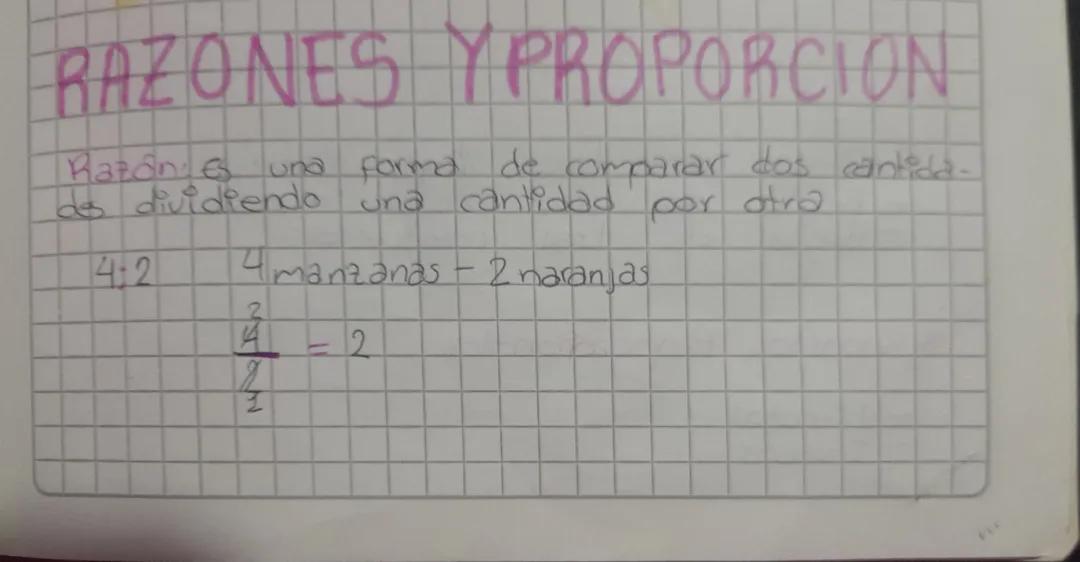 RAZONES Y PROPORCION
Razón: es una forma de comparar dos cantida-
des dividiendo una cantidad por otra
4:2 4 manzanas - 2 naranjas
2
4
— = 2
2
1